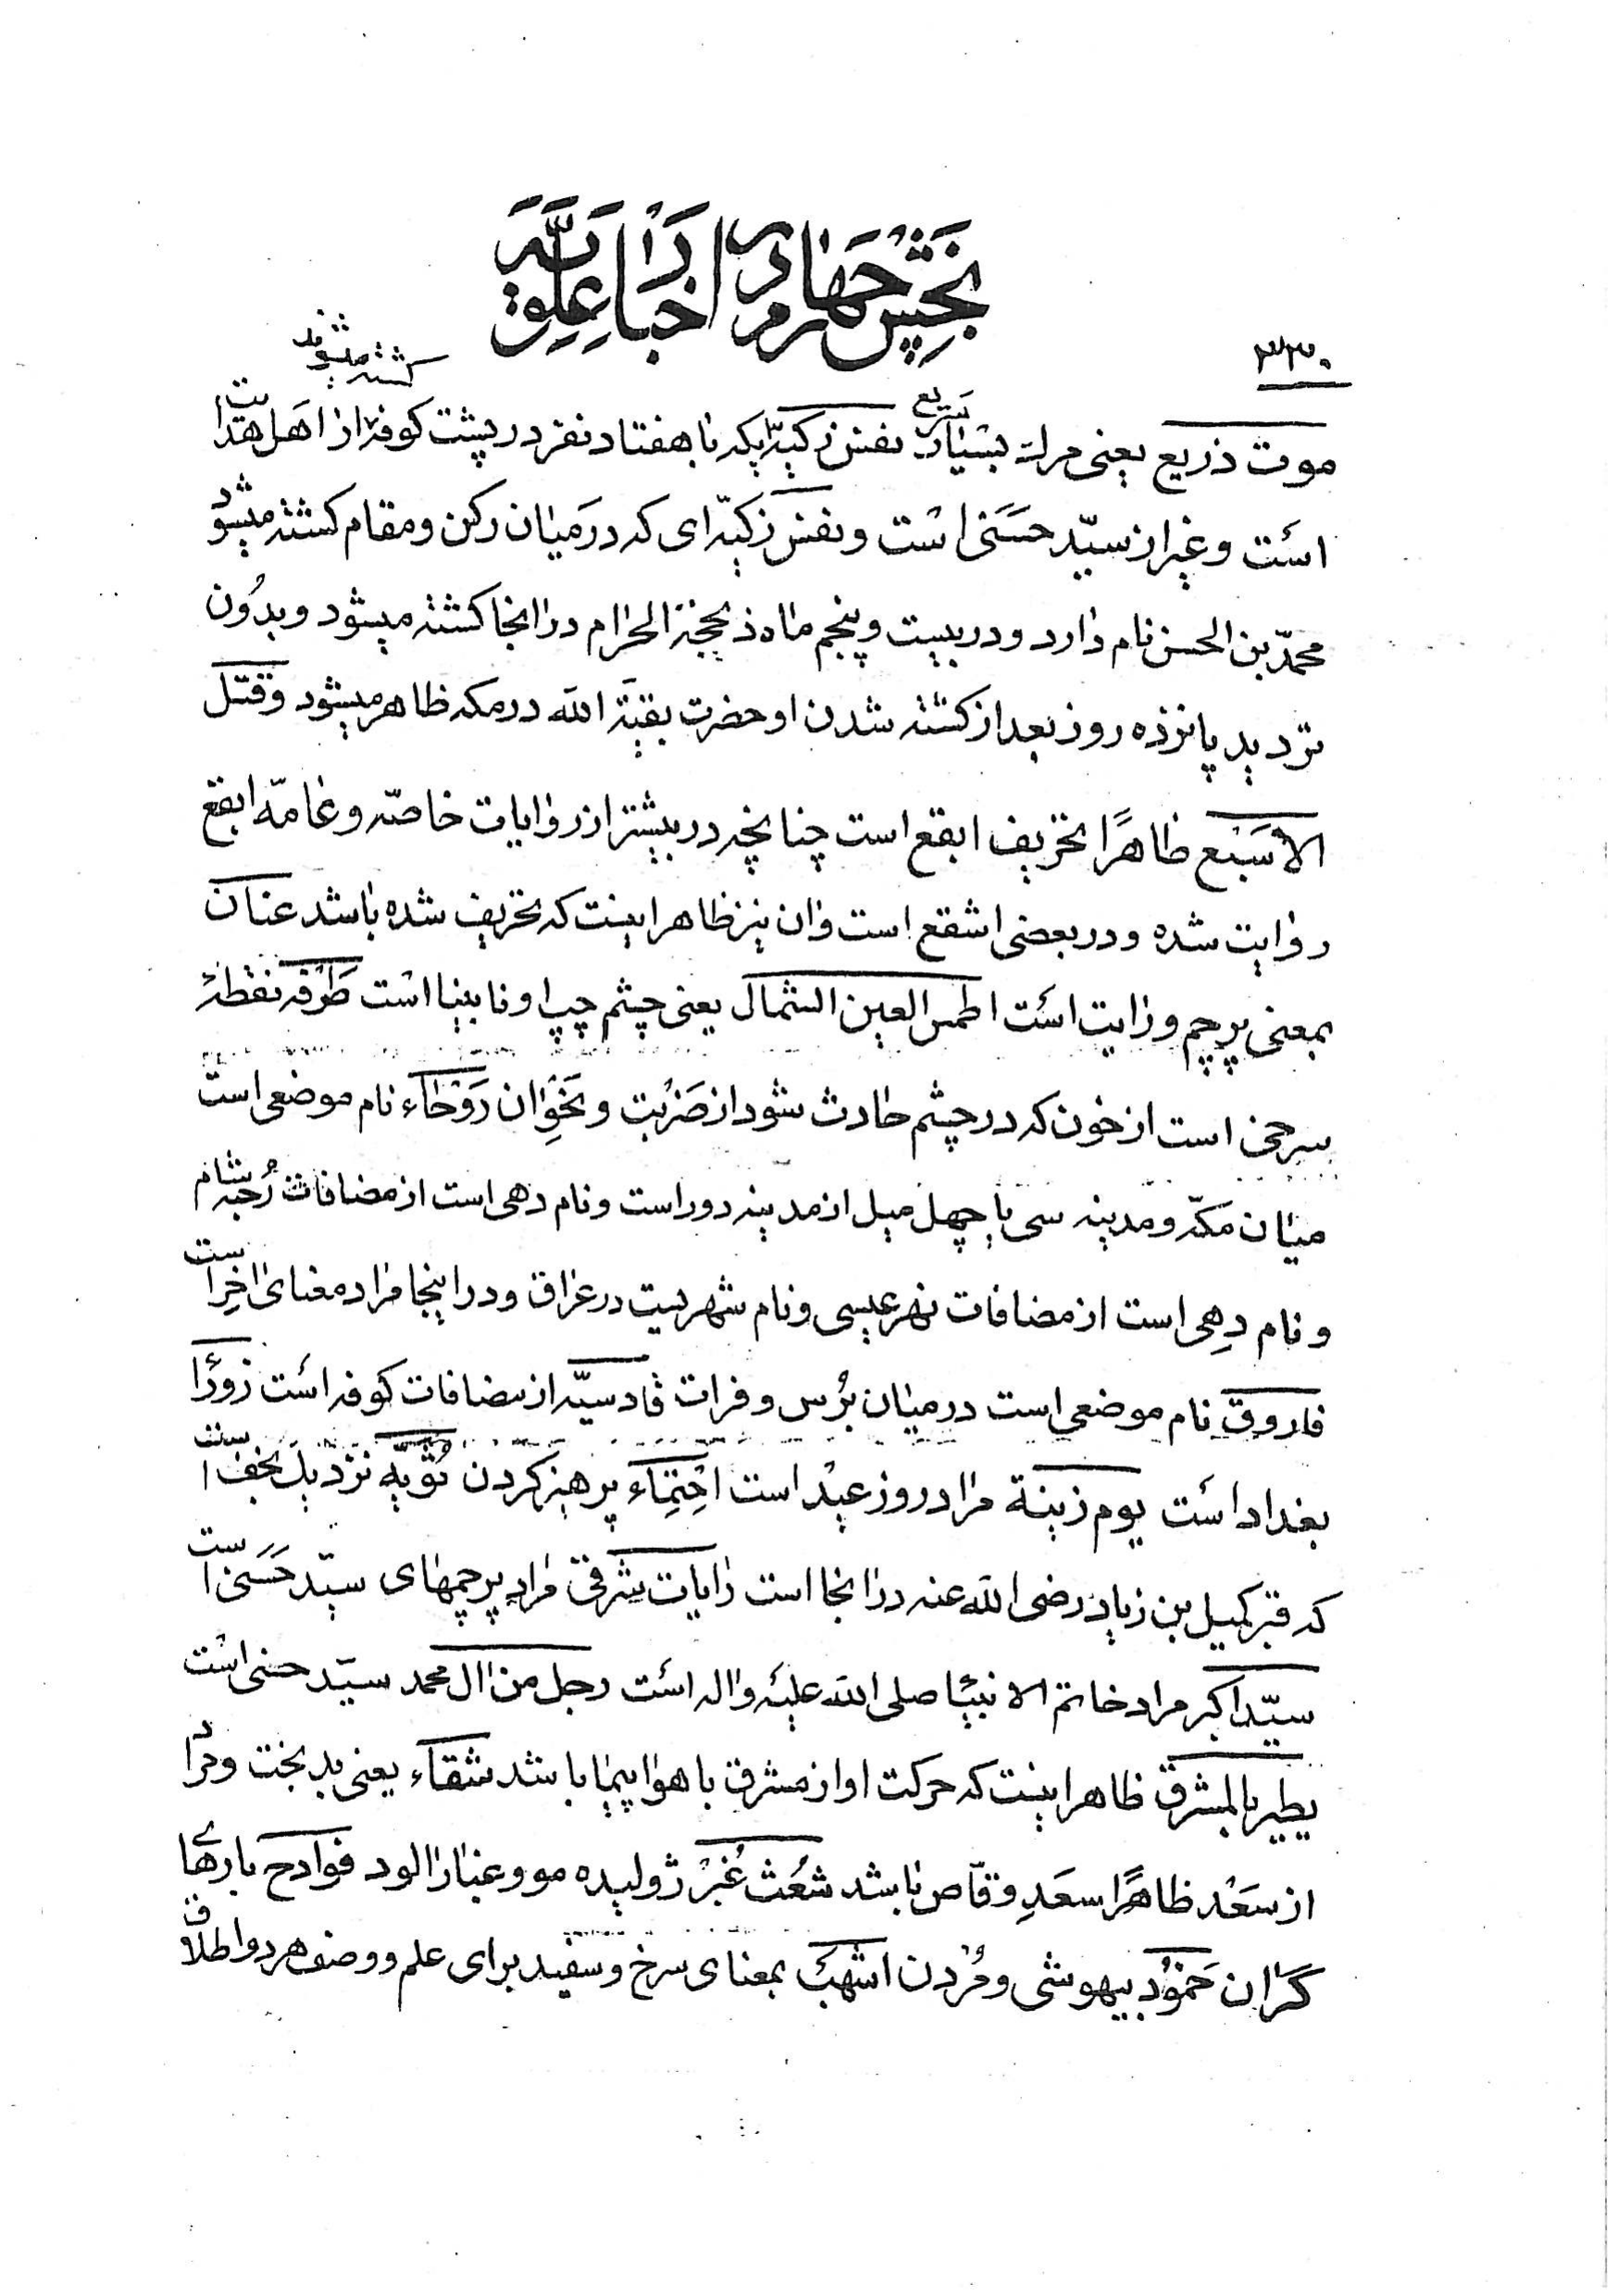 بخش چهارم در اخبار علویّه
۳۳۰
کشته میشوند
موت ذریع یعنی مرك بسیار سریع نفس زکیّه ایکه با هفتاد نفر در پشت کوفه از اهل هدایت
است و غیر از سیّد حسنی است و نفس زکیّه ای که در میان رکن و مقام کشته میشود
محمّد بن الحسن نام دارد و در بیست و پنجم ماه ذیحجة الحرام در آنجا کشته میشود و بدون
تردید پانزده روز بعد از کشته شدن او حضرت بقیّة الله در مکه ظاهر میشود و قتل
الاسبع ظاهرًا تحریف ابقع است چنانچه در بیشتر از روایات خاصّه و عامّه ابقع
روایت شده و در بعضی اشقع است و آن نیز ظاهر اینست که تحریف شده باشد عنان
بمعنی پرچم و رایت است اطمس العین الشمال یعنی چشم چپ او نابینا است طَرْفه نقطهٔ
سرخی است از خون که در چشم حادث شود از ضَرْبت و نحو آن رَوْحاء نام موضعی است
میان مکّه و مدینه سی یا چهل میل از مدینه دور است و نام دهی است از مضافات رُحبه شام
و نام دِهی است از مضافات نهر عیسی و نام شهریست در عراق و در اینجا مراد معنای اخِر است
فاروق نام موضعی است در میان بُرس و فرات قادسیّه از مضافات کوفه است زوراء
بغداد است یوم زینة مراد روز عید است احْتِماء پرهیز کردن ثُوَیّه نزدیك نجف است
که قبر کمیل بن زیاد رضی الله عنه در آنجا است رایات شرقی مراد پرچمهای سیّد حَسَنی است
سیّد اکبر مراد خاتم الانبیا صلی الله علیه و اله است رجل من ال محمد سیّد حسنی است
یطیر بالمشرق ظاهر اینست که حرکت او از مشرق با هواپیما باشد شقاء یعنی بدبخت و مراد
از سَعْد ظاهرًا سعَدِ وقّاص باشد شُعْث غُبْر ژولیده مو و غبار الود فوادح بارهای
گران خمُود بیهوشی و مُردن اشهب بمعنای سرخ و سفید برای علم و وصف هر دو اطلاق